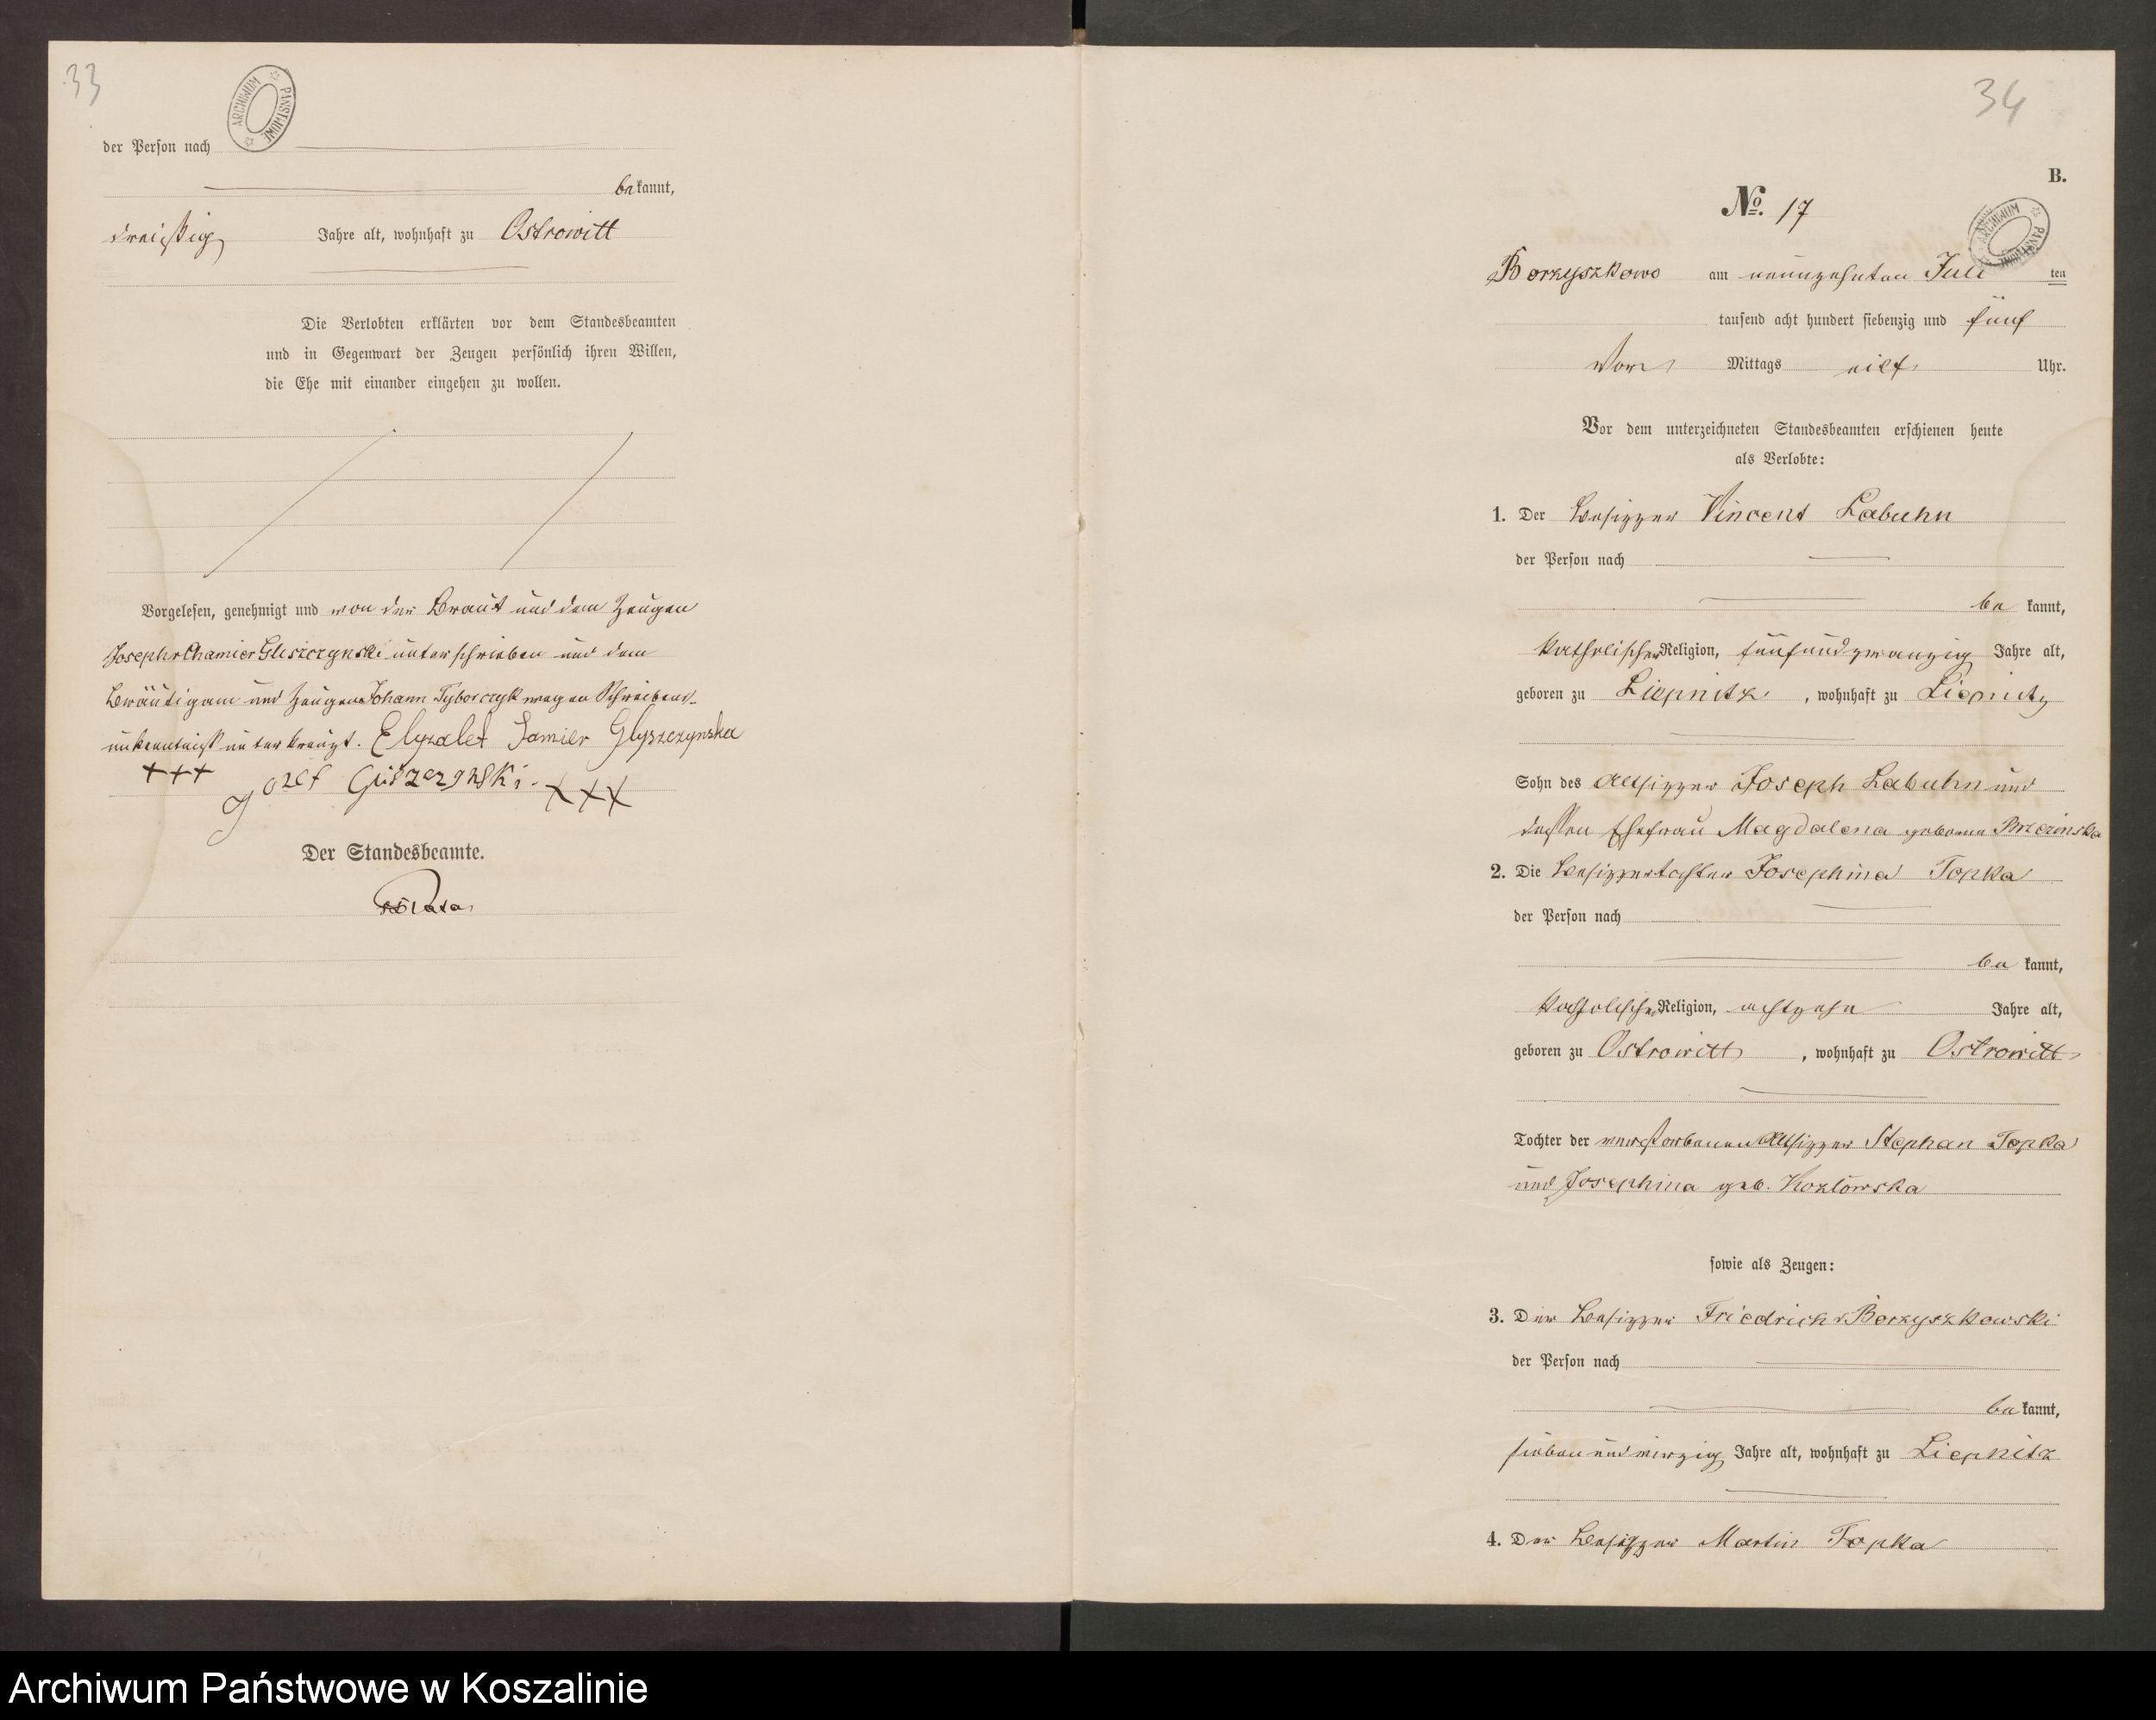 33
ARCHIWUM PAŃSTWOWE
der Person nach
bekannt,
dreißig Jahre alt, wohnhaft zu Ostrowitt
Die Verlobten erklärten vor dem Standesbeamten
und in Gegenwart der Zeugen persönlich ihren Willen,
die Ehe mit einander eingehen zu wollen.
Vorgelesen, genehmigt und von der Braut und dem Zeugen
Joseph v Chamier Gliszczynski unterschrieben und dem
Bräutigam und Zeugen Johann Tyborczyk wegen Schreibens-
unkenntniß unterkreuzt. Elyzabet Jamier Glyszczynska
+++ Jozef Gliszczynski. +++
Der Standesbeamte.
34
B.
No. 17
ARCHIWUM PAŃSTWOWE
Borzyszkowo am neunzehnten Juli ten
tausend acht hundert siebenzig und fünf
Vor Mittags eilf Uhr.
Vor dem unterzeichneten Standesbeamten erschienen heute
als Verlobte:
1. Der Besitzer Vincent Labuhn
der Person nach
be kannt,
katholischer Religion, fünfundzwanzig Jahre alt,
geboren zu Liepnitz, wohnhaft zu Liepnitz
Sohn des Altsitzer Joseph Labuhn und
dessen Ehefrau Magdalena geborne Brzezinska
2. Die Besitzertochter Josephina Topka
der Person nach
be kannt,
katholischer Religion, achtzehn Jahre alt,
geboren zu Ostrowitt, wohnhaft zu Ostrowitt
Tochter der verstorbenen Altsitzer Stephan Topka
und Josephina geb. Kozlowska
sowie als Zeugen:
3. Der Besitzer Friedrich v Borzyszkowski
der Person nach
be kannt,
siebenundvierzig Jahre alt, wohnhaft zu Liepnitz
4. Der Besitzer Martin Topka
Archiwum Państwowe w Koszalinie